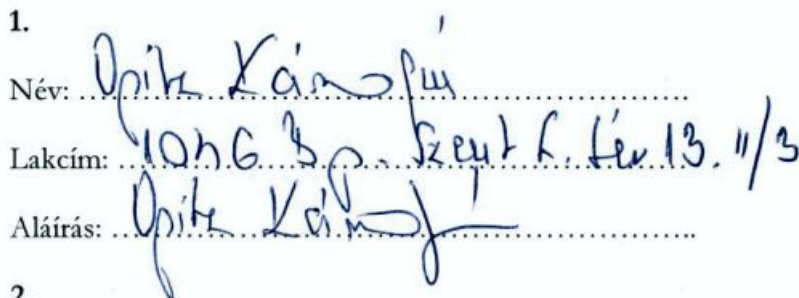 1.
Név: Opitz Károlyné
Lakcím: Bp. Szent I. tér 13. II/3
Aláírás: Opitz Károlyné
2.